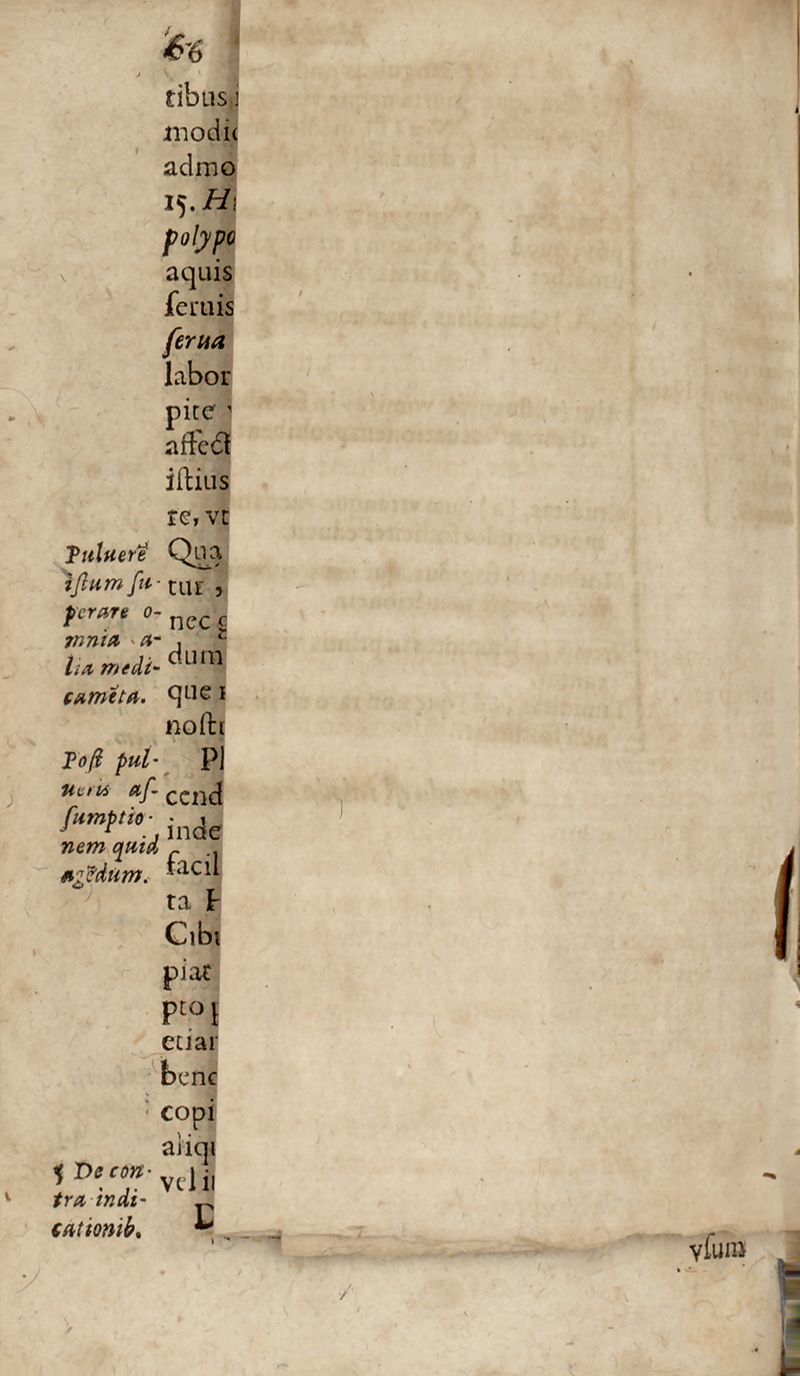 66
tibus
modi
admo
15. Hi
polypo
aquis
ſeruis
ſerua
labor
pite
affect
iſtius
re, vt
Puluerē
iſtum ſu-
perare o-
mnia a-
lia medi-
camēta.
Qua
tur,
nec
dum
que
noſt
Poſt pul-
ueris aſ-
ſumptio-
nem quid
agēdum.
Pl
cend
inde
facil
ta
Cibi
piat
pto
etiar
bene
copi
aliqu
vel
¶ De con-
tra indi-
cationib.
vſum